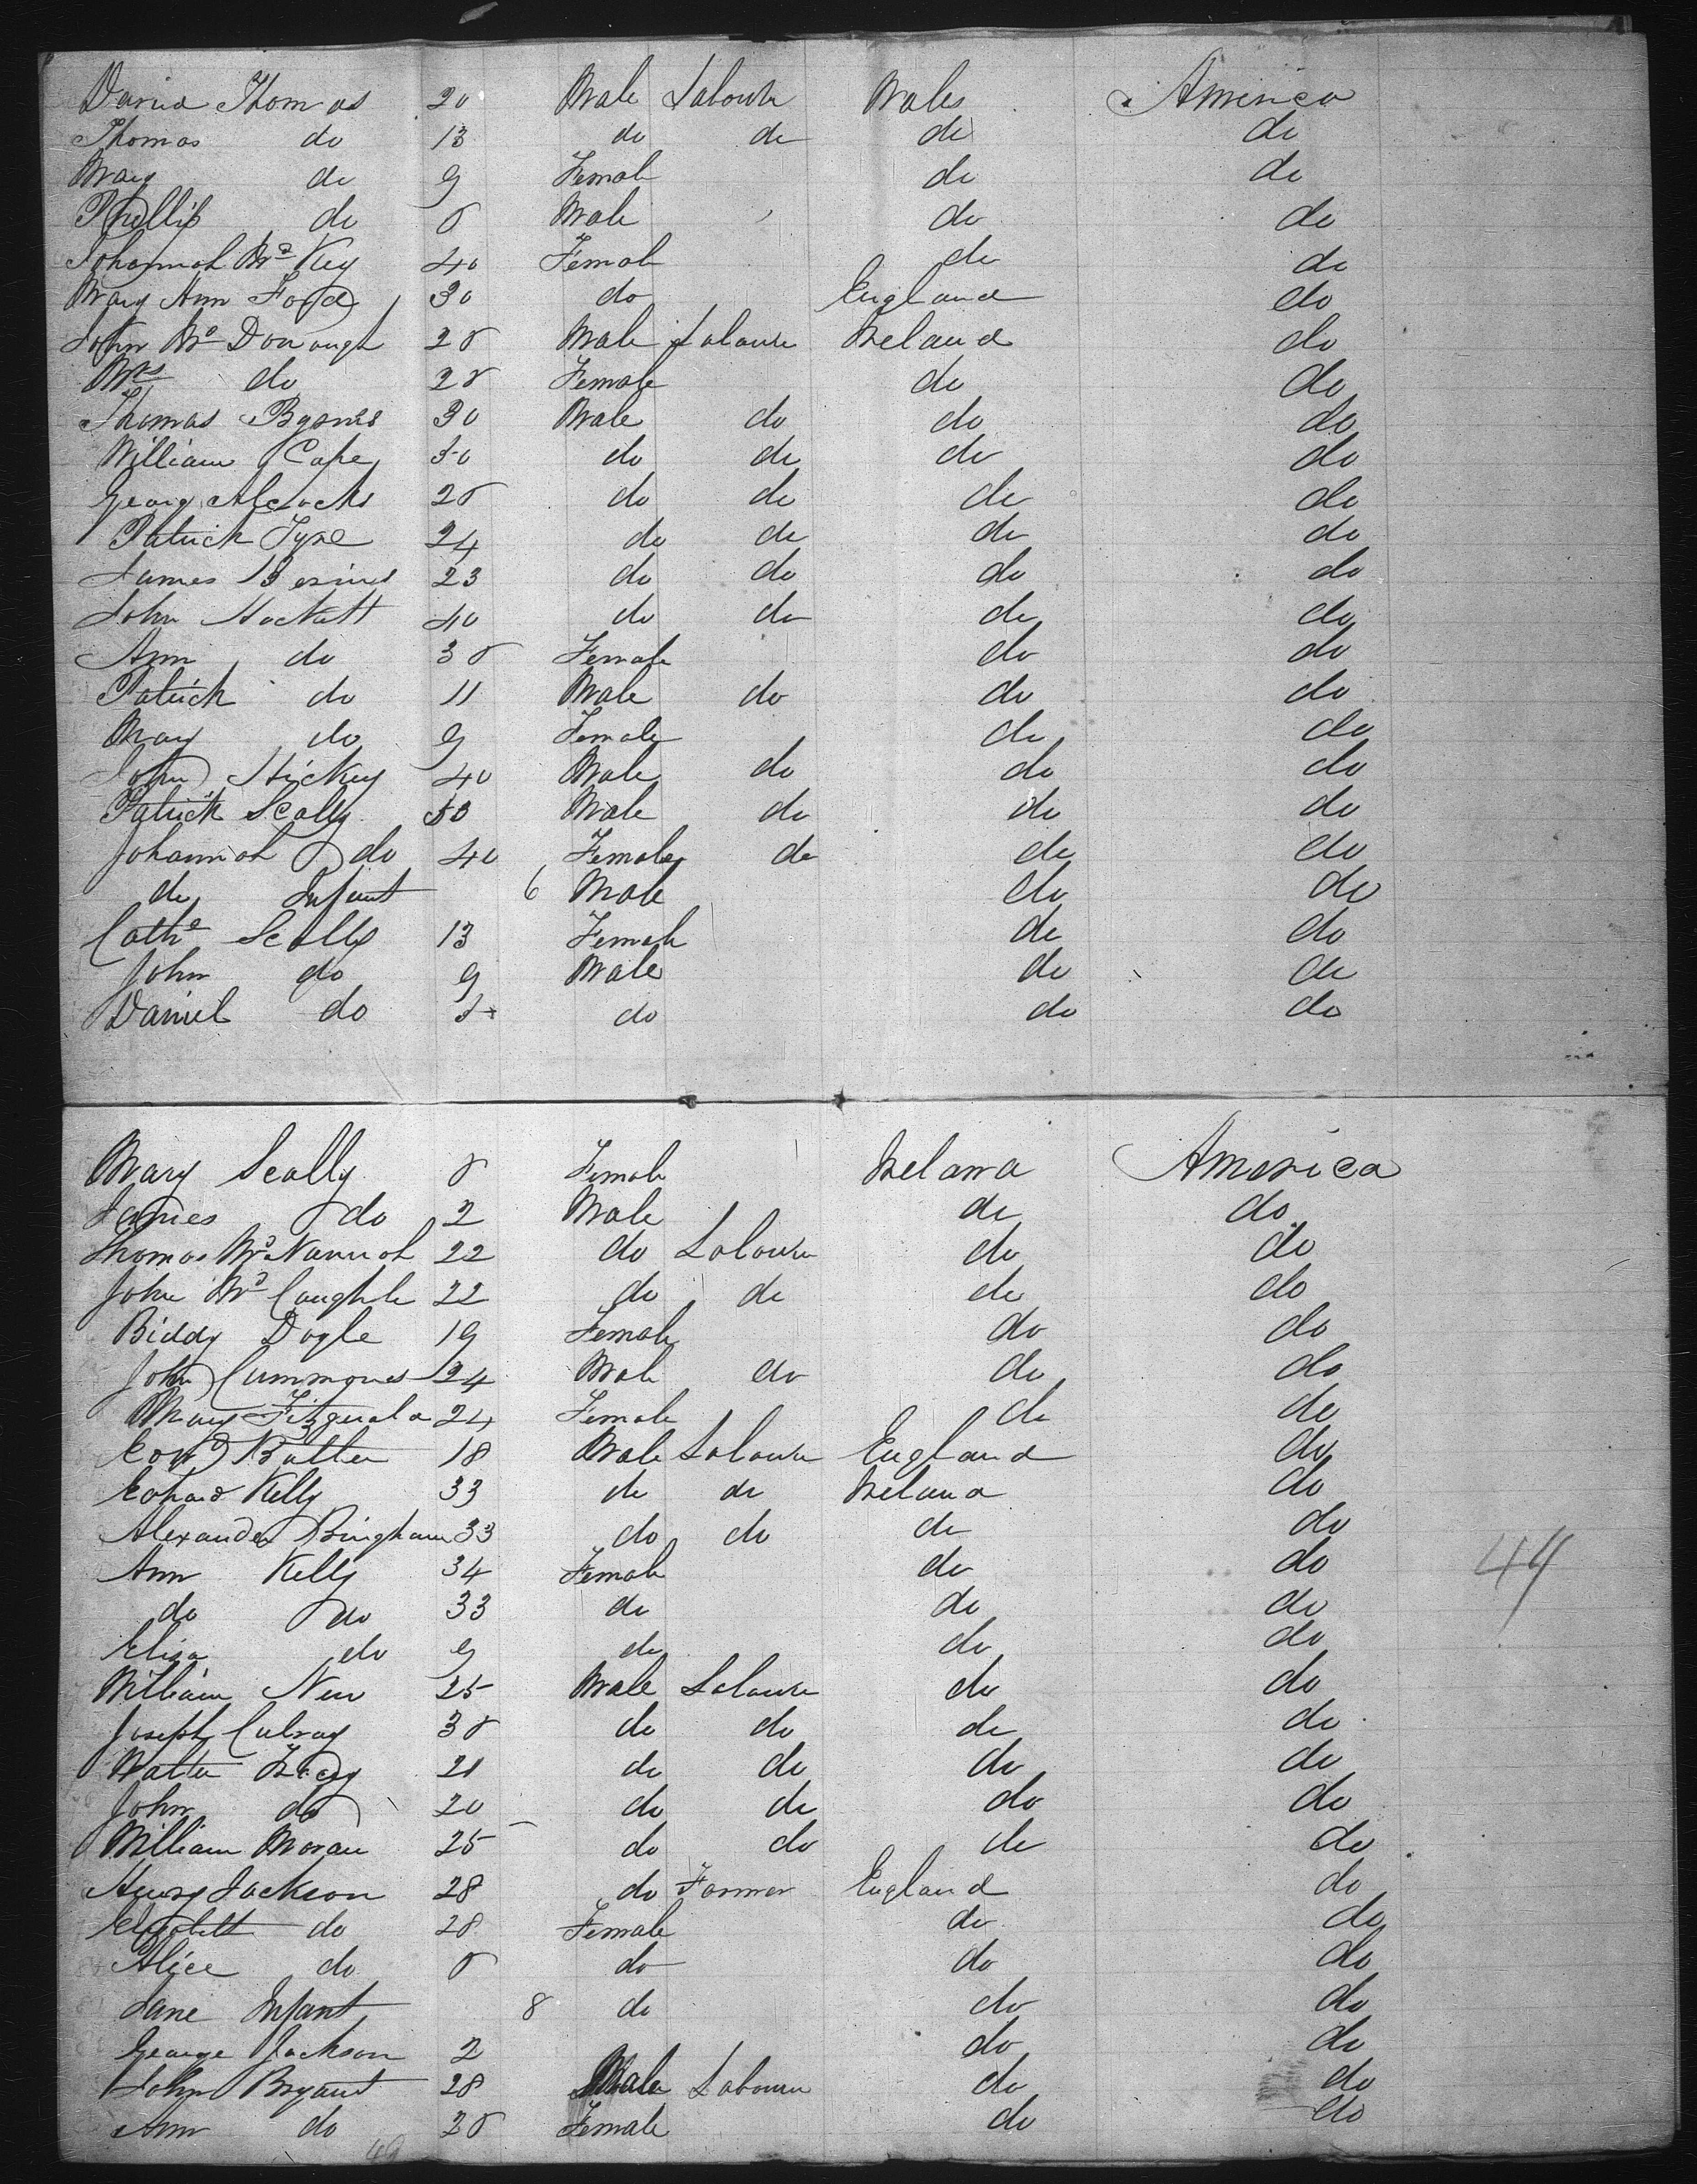 David Thomas 20 Male Labourer Wales America
Thomas do 13 do do do do
Mary do 9 Female do do
Phillip do 8 Male do do
Johannah Mc Key 40 Female do do
Mary Ann Ford 30 do England do
John Mc Donough 28 Male Labourer Ireland do
Mrs do 28 Female do do
Thomas Byrnes 30 Male do do do
William Cape 50 do do do do
Georg Alcocks 28 do do do do
Patrick 24 do do do do
James 23 do do do do
John Hackett 40 do do do do
Ann do 38 Female do do
Patrick do 11 Male do do do
Mary do 9 Female do do
John Hickey 40 Male do do do
Patrick Scally 50 Male do do do
Johannah do 40 Female do do do
do Infant 6 Male do do
Cathe Scally 13 Female do do
John do 9 Male do do
Daniel do do do do
Mary Scally 8 Female Ireland America
James do 2 Male do do
Thomas Mc Nannah 22 do Labourer do do
John Mc Caughle 22 do do do do
Biddy Dogle 19 Female do do
John Cummynes 24 Male do do do
Mary Fitzgerald 24 Female do do
Edwd Butler 18 Male Labourer England do
Edward Kelly 33 do do Ireland do
Alexander Bingham 33 do do do do
Ann Kelly 34 Female do do
do do 33 do do do
Eliza do 9 do do do
William New 25 Male Labourer do do
Joseph Culray 38 do do do do
Walter 21 do do do do
John do 20 do do do do
William Moran 25 do do do do
Henry Jackson 28 do Farmer England do
Elizabeth do 28 Female do do
Alice do 8 do do do
Jane Infant 8 do do do
George Jackson 2 do do
John Bryant 28 Male Labourer do do
Ann do 28 Female do do
44
49